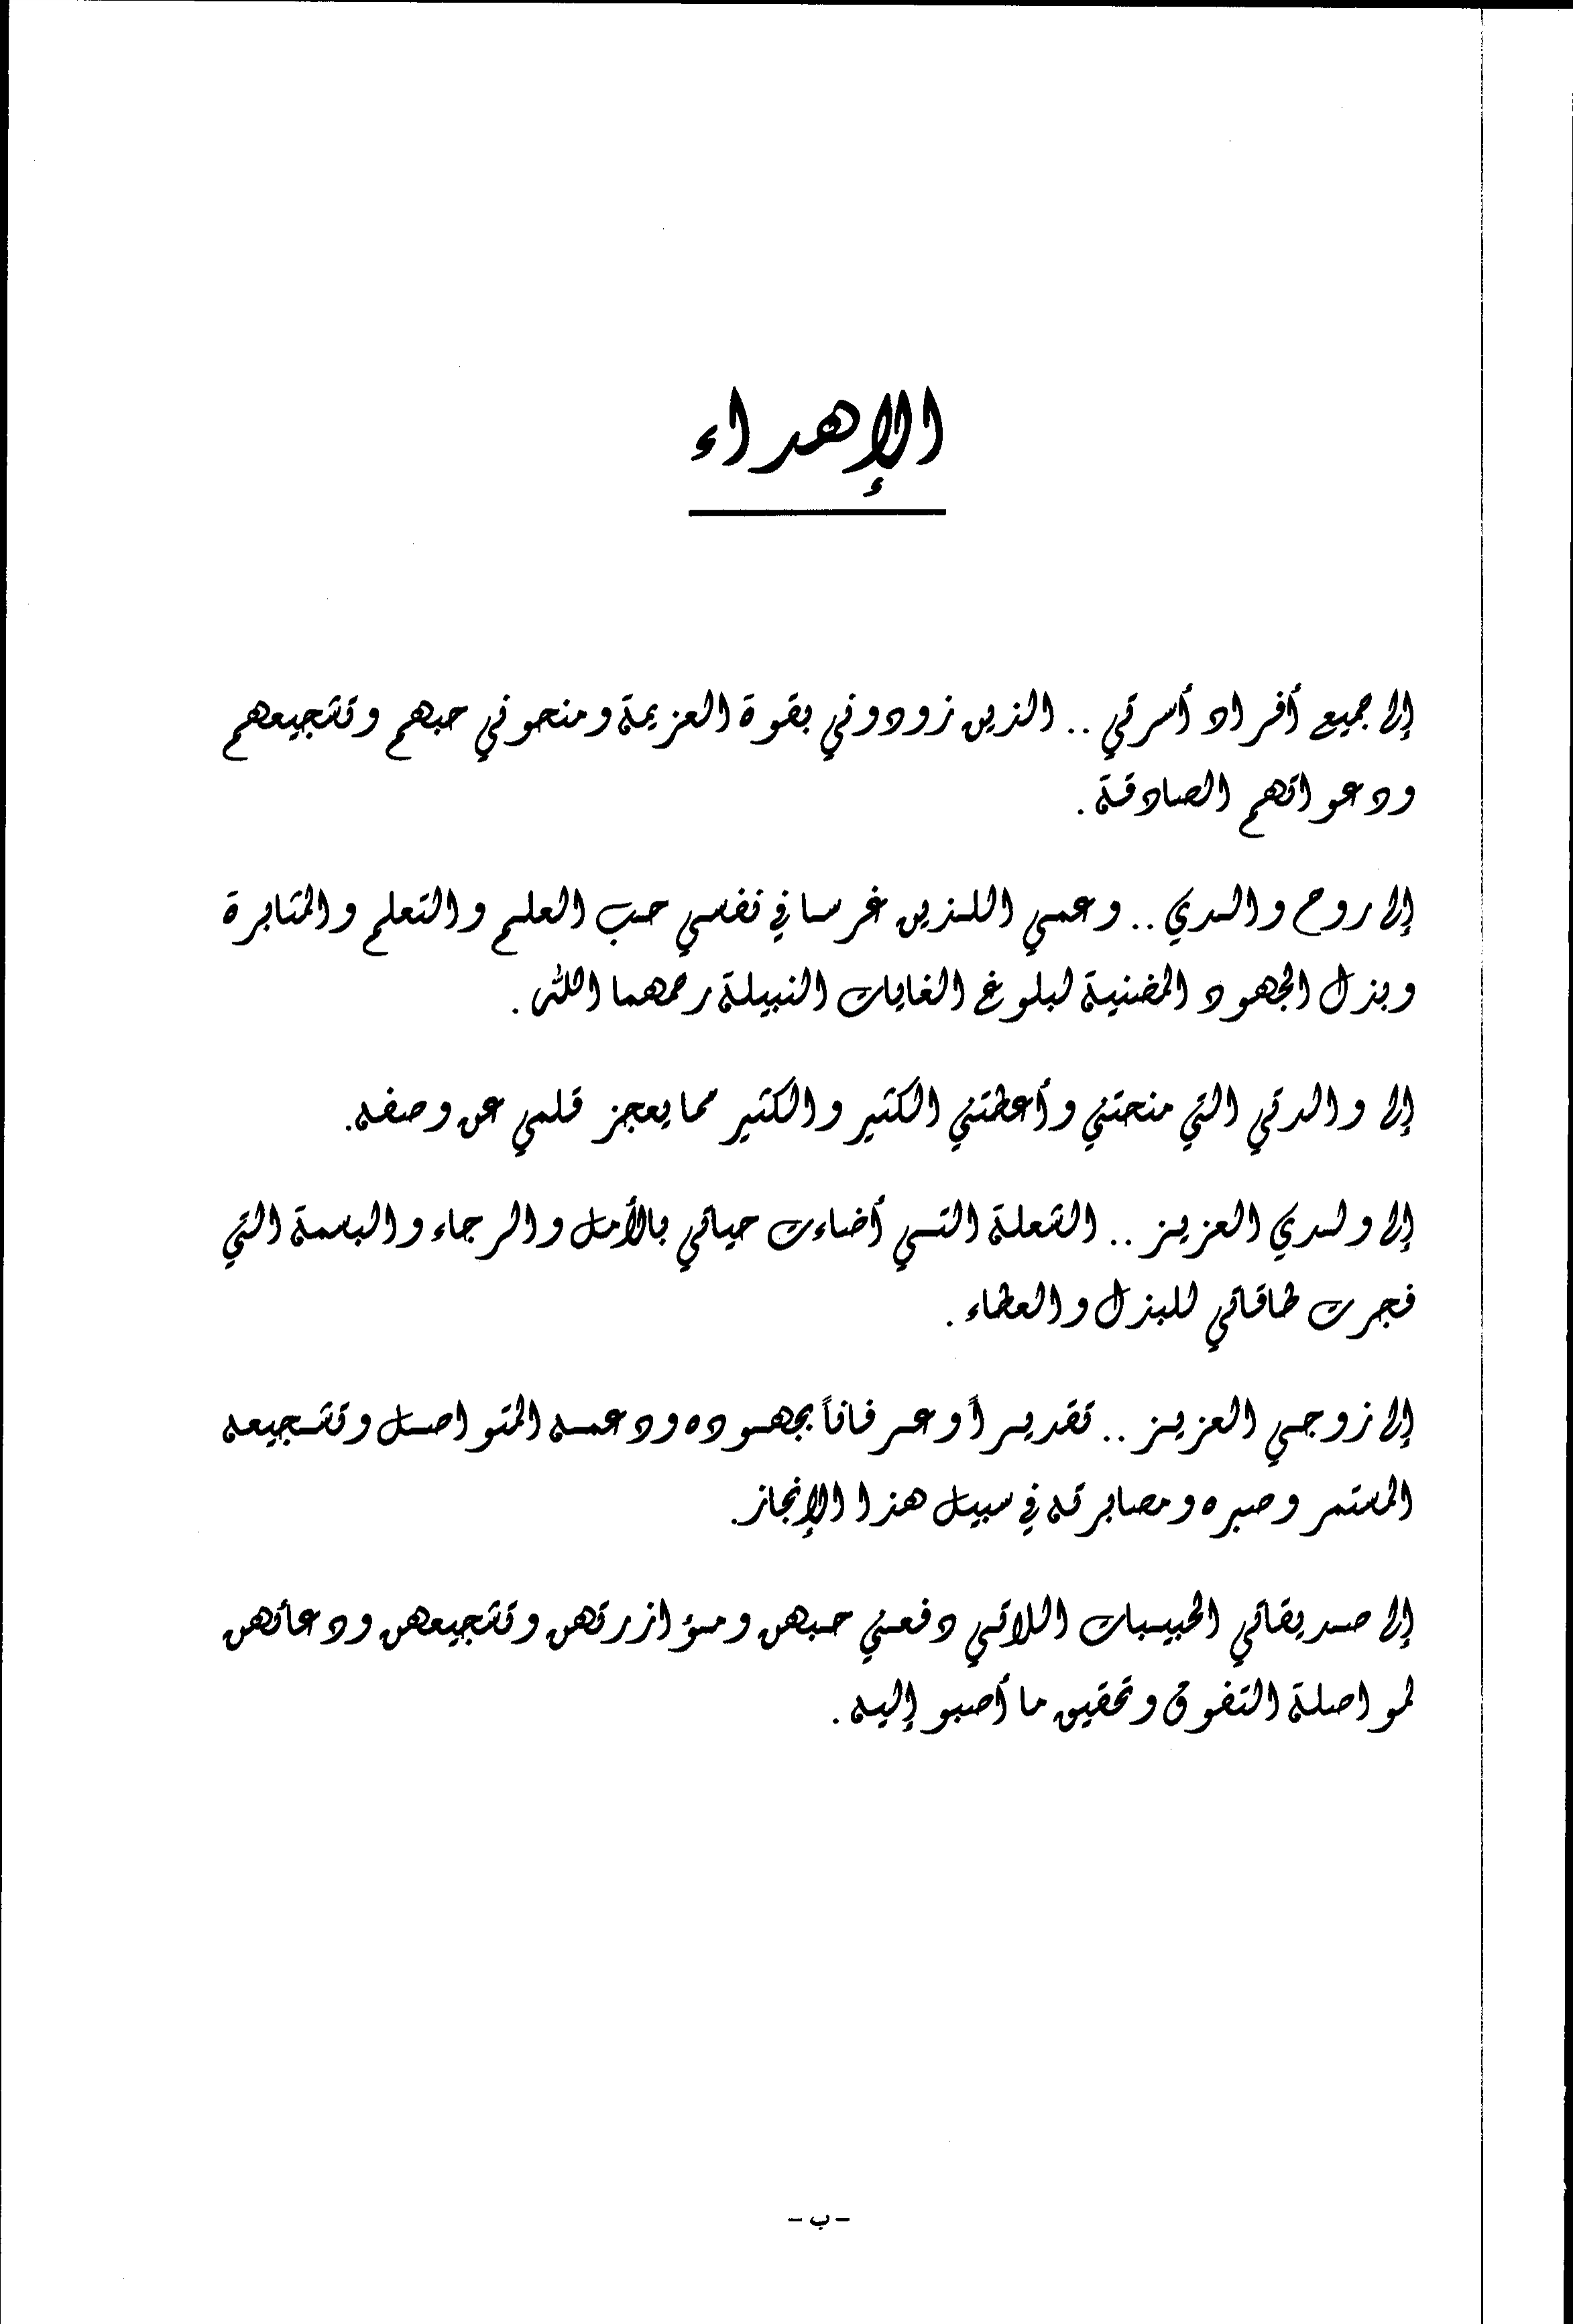 الإهداء
إلى جميع أفراد أسرتي .. الذين زودوني بقوة العزيمة ومنحوني حبهم وتشجيعهم
ودعواتهم الصادقة .
إلى روح والدي .. وعمي اللذين غرسا في نفسي حب العلم والتعلم والمثابرة
وبذل الجهود المضنية لبلوغ الغايات النبيلة رحمهما الله .
إلى والدتي التي منحتني وأعطتني الكثير والكثير مما يعجز قلمي عن وصفه.
إلى ولدي العزيز .. الشعلة التي أضاءت حياتي بالأمل والرجاء والبسمة التي
فجرت طاقاتي للبذل والعطاء .
إلى زوجي العزيز .. تقديراً وعرفاناً بجهوده ودعمه المتواصل وتشجيعه
المستمر وصبره ومصابرته في سبيل هذا الإنجاز.
إلى صديقاتي الحبيبات اللاتي دفعني حبهن ومؤازرتهن وتشجيعهن ودعائهن
لمواصلة التفوق وتحقيق ما أصبو إليه .
- ب -